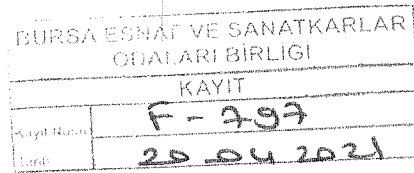 BURSA ESNAF VE SANATKARLAR
ODALARI BİRLİĞİ
KAYIT
Kayıt No:su F-797
Tarih 20 04 2021